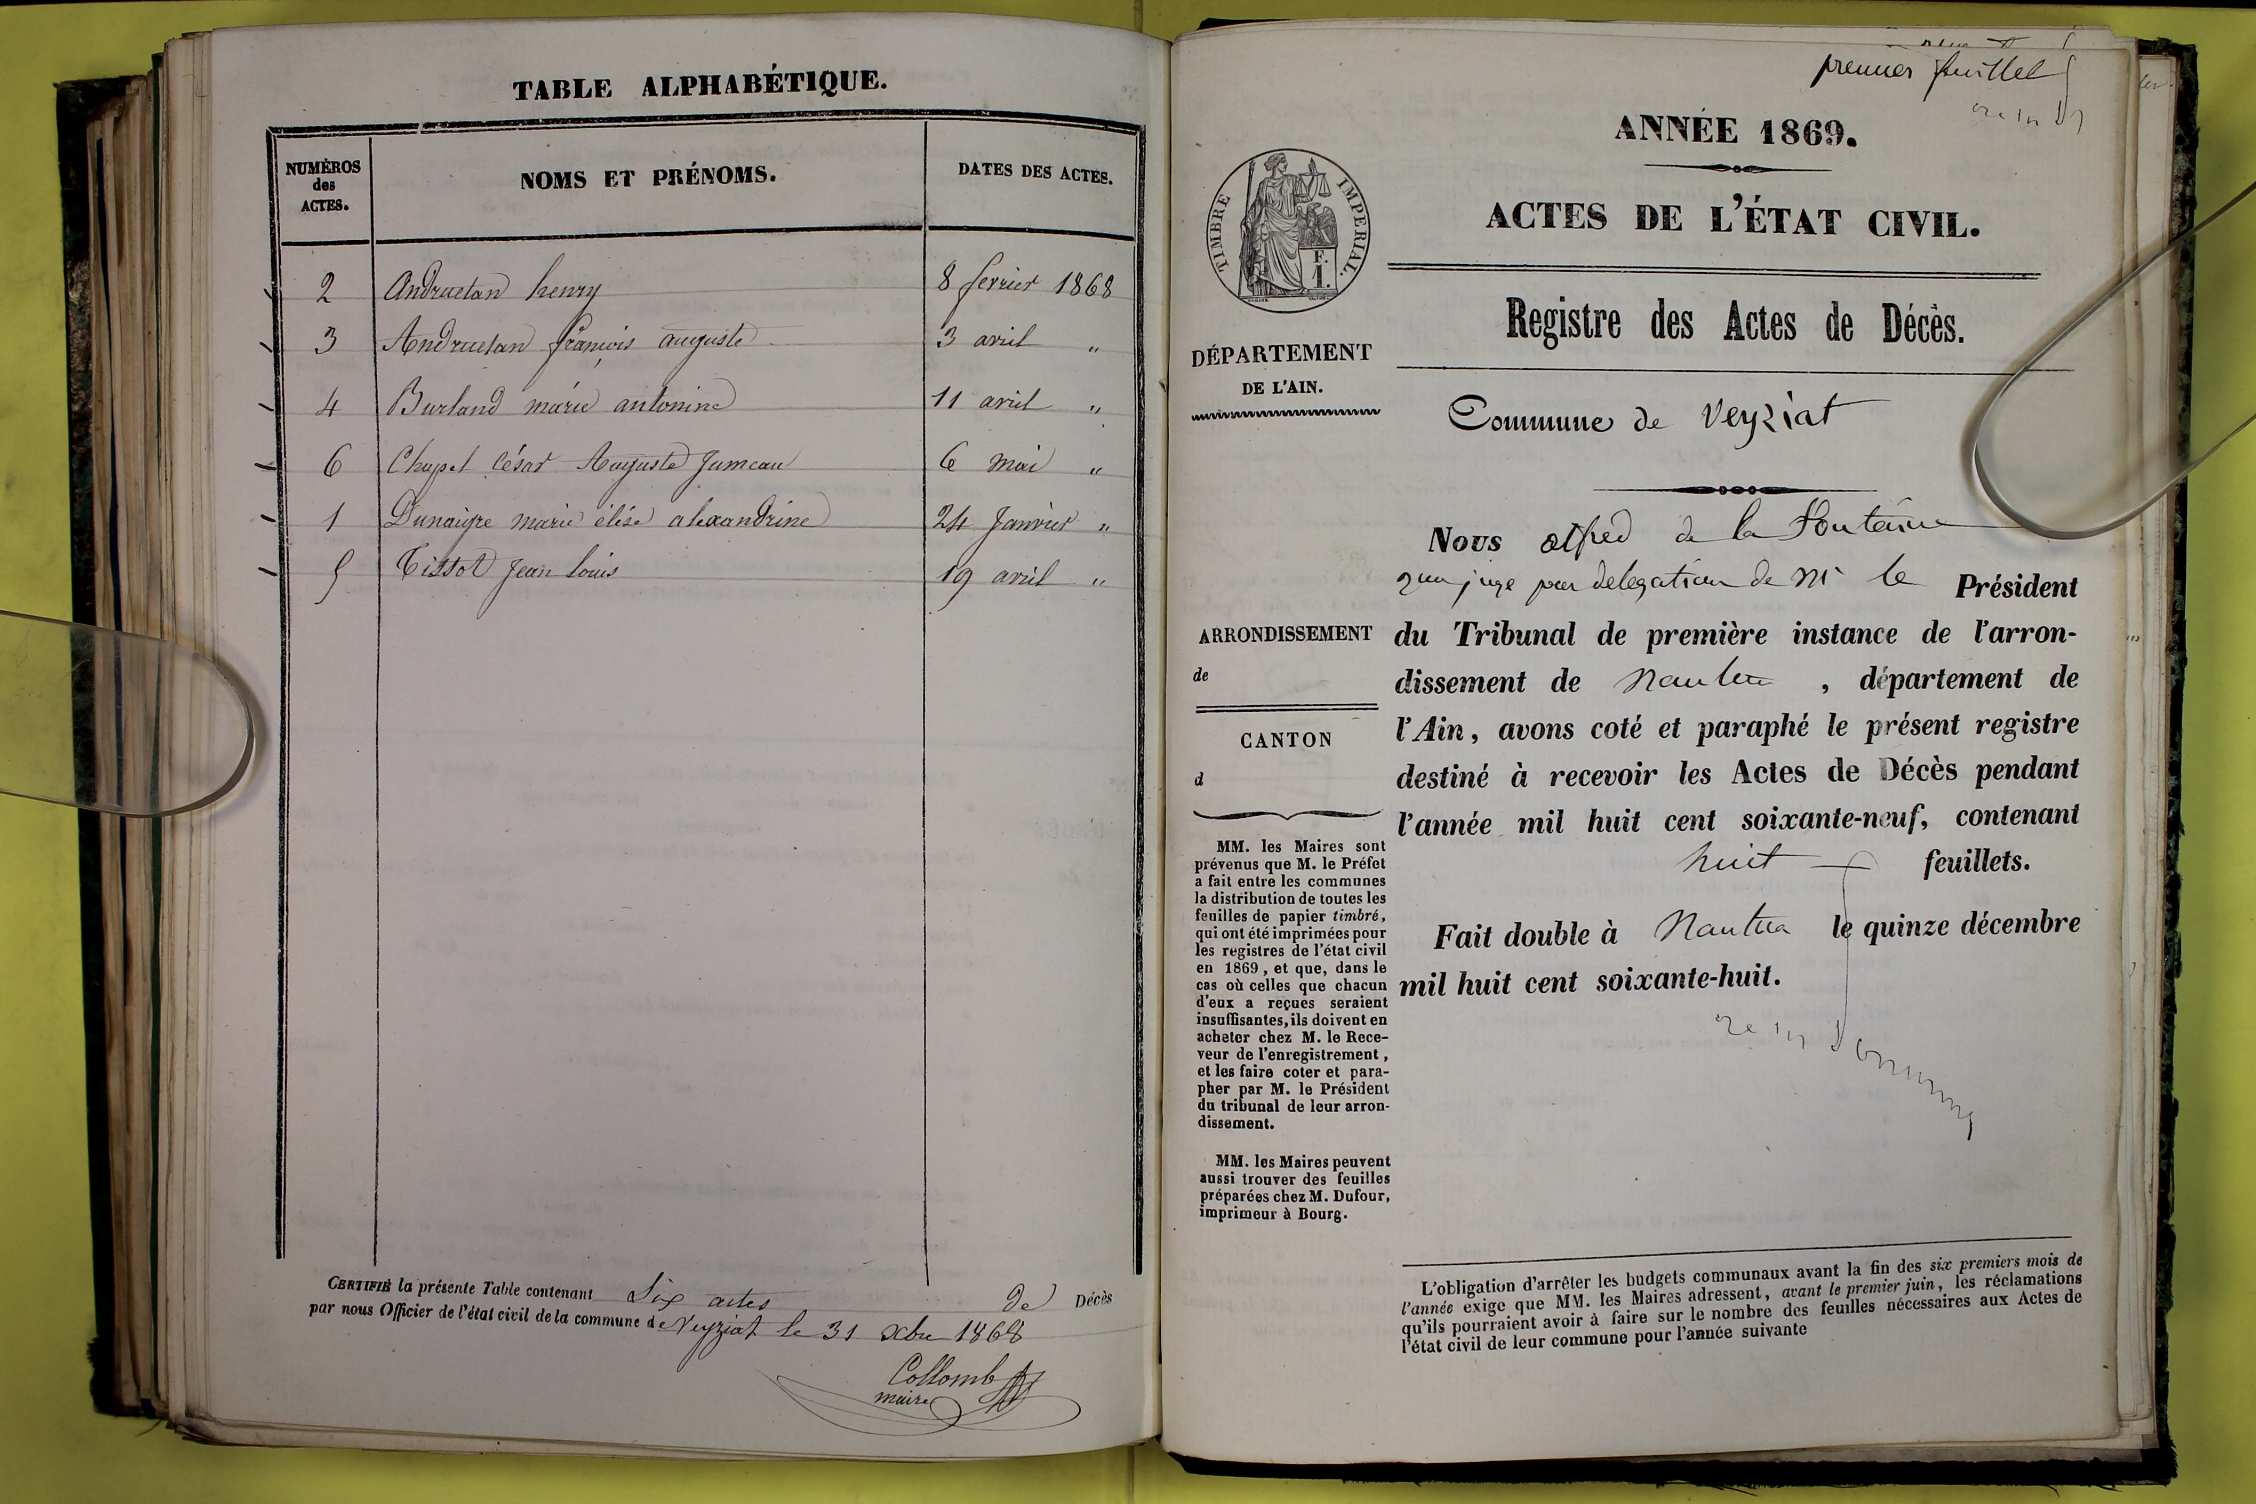 TABLE ALPHABÉTIQUE.
NUMÉROS des ACTES.
NOMS ET PRÉNOMS.
DATES DES ACTES.
2 Andruetan henry 8 fevrier 1868
3 Andruetan françois auguste 3 avril "
4 Burland marie antonine 11 avril "
6 Chapel César Auguste Jumeau 6 mai "
1 Dunaigre marie élise alexandrine 24 Janvier "
5 Tissot Jean Louis 19 avril "
CERTIFIÉ la présente Table contenant Six actes de Décès
par nous Officier de l'état civil de la commune de Veyziat le 31 xbre 1868
Collomb
maire
premier feuillet
ANNÉE 1869.
ACTES DE L'ÉTAT CIVIL.
TIMBRE IMPERIAL.
F.
1.
DÉPARTEMENT
DE L'AIN.
ARRONDISSEMENT
de
CANTON
d
MM. les Maires sont
prévenus que M. le Préfet
a fait entre les communes
la distribution de toutes les
feuilles de papier timbré,
qui ont été imprimées pour
les registres de l'état civil
en 1869, et que, dans le
cas où celles que chacun
d'eux a reçues seraient
insuffisantes, ils doivent en
acheter chez M. le Rece-
veur de l'enregistrement,
et les faire coter et para-
pher par M. le Président
du tribunal de leur arron-
dissement.
MM. les Maires peuvent
aussi trouver des feuilles
préparées chez M. Dufour,
imprimeur à Bourg.
Registre des Actes de Décès.
Commune de Veyziat
Nous alfred de la Fontaine
juge par delegation de Mr le Président
du Tribunal de première instance de l'arron-
dissement de Nantua , département de
l'Ain, avons coté et paraphé le présent registre
destiné à recevoir les Actes de Décès pendant
l'année mil huit cent soixante-neuf, contenant
huit feuillets.
Fait double à Nantua le quinze décembre
mil huit cent soixante-huit.
L'obligation d'arrêter les budgets communaux avant la fin des six premiers mois de
l'année exige que MM. les Maires adressent, avant le premier juin, les réclamations
qu'ils pourraient avoir à faire sur le nombre des feuilles nécessaires aux Actes de
l'état civil de leur commune pour l'année suivante